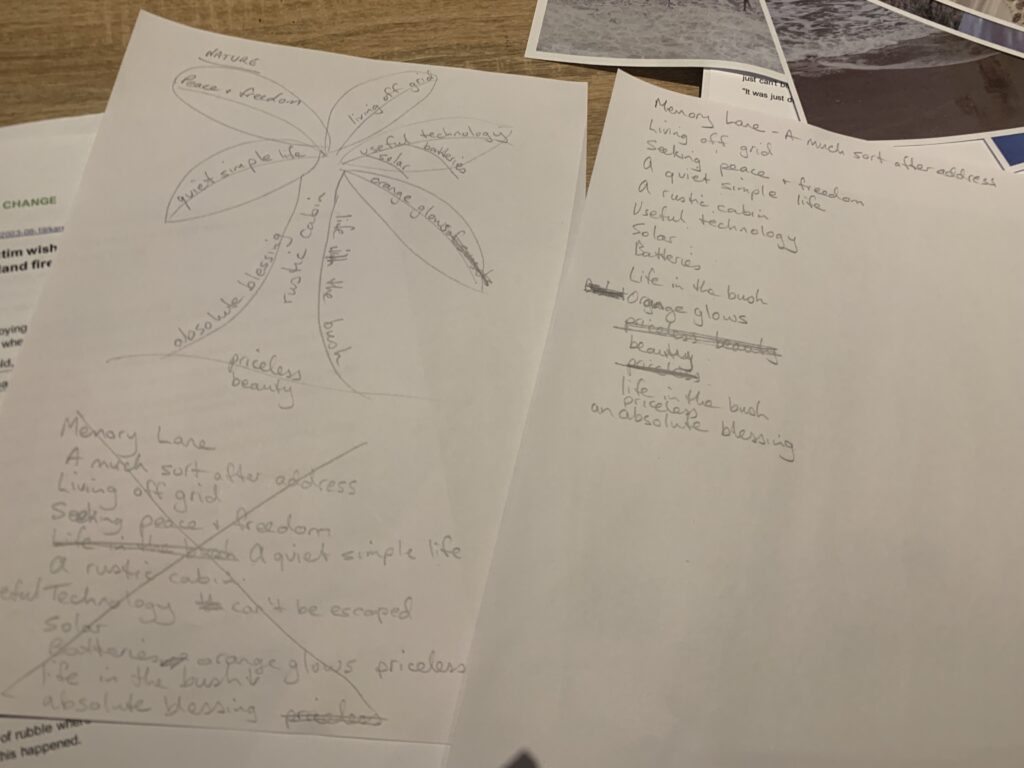 CHANGE
2023-08-18
tim wish
and fire
oying
whe
ld.
of rubble where
his happened.
NATURE
Peace + freedom
living off grid
quiet simple life
useful technology
batteries
solar
orange glows
absolute blessing
rustic cabin
life in the bush
priceless
beauty
Memory Lane
A much sort after address
Living off grid
Seeking peace + freedom
Life in the bush A quiet simple life
A rustic cabin
eful Technology can't be escaped
Solar
Batteries orange glows priceless
life in the bush
absolute blessing priceless
just can't b
"It was just d
Memory Lane - A much sort after address
Living off grid
Seeking peace + freedom
A quiet simple life
A rustic cabin
Useful technology
Solar
Batteries
Life in the bush
Orange glows
priceless beauty
beauty
priceless
life in the bush
priceless
an absolute blessing